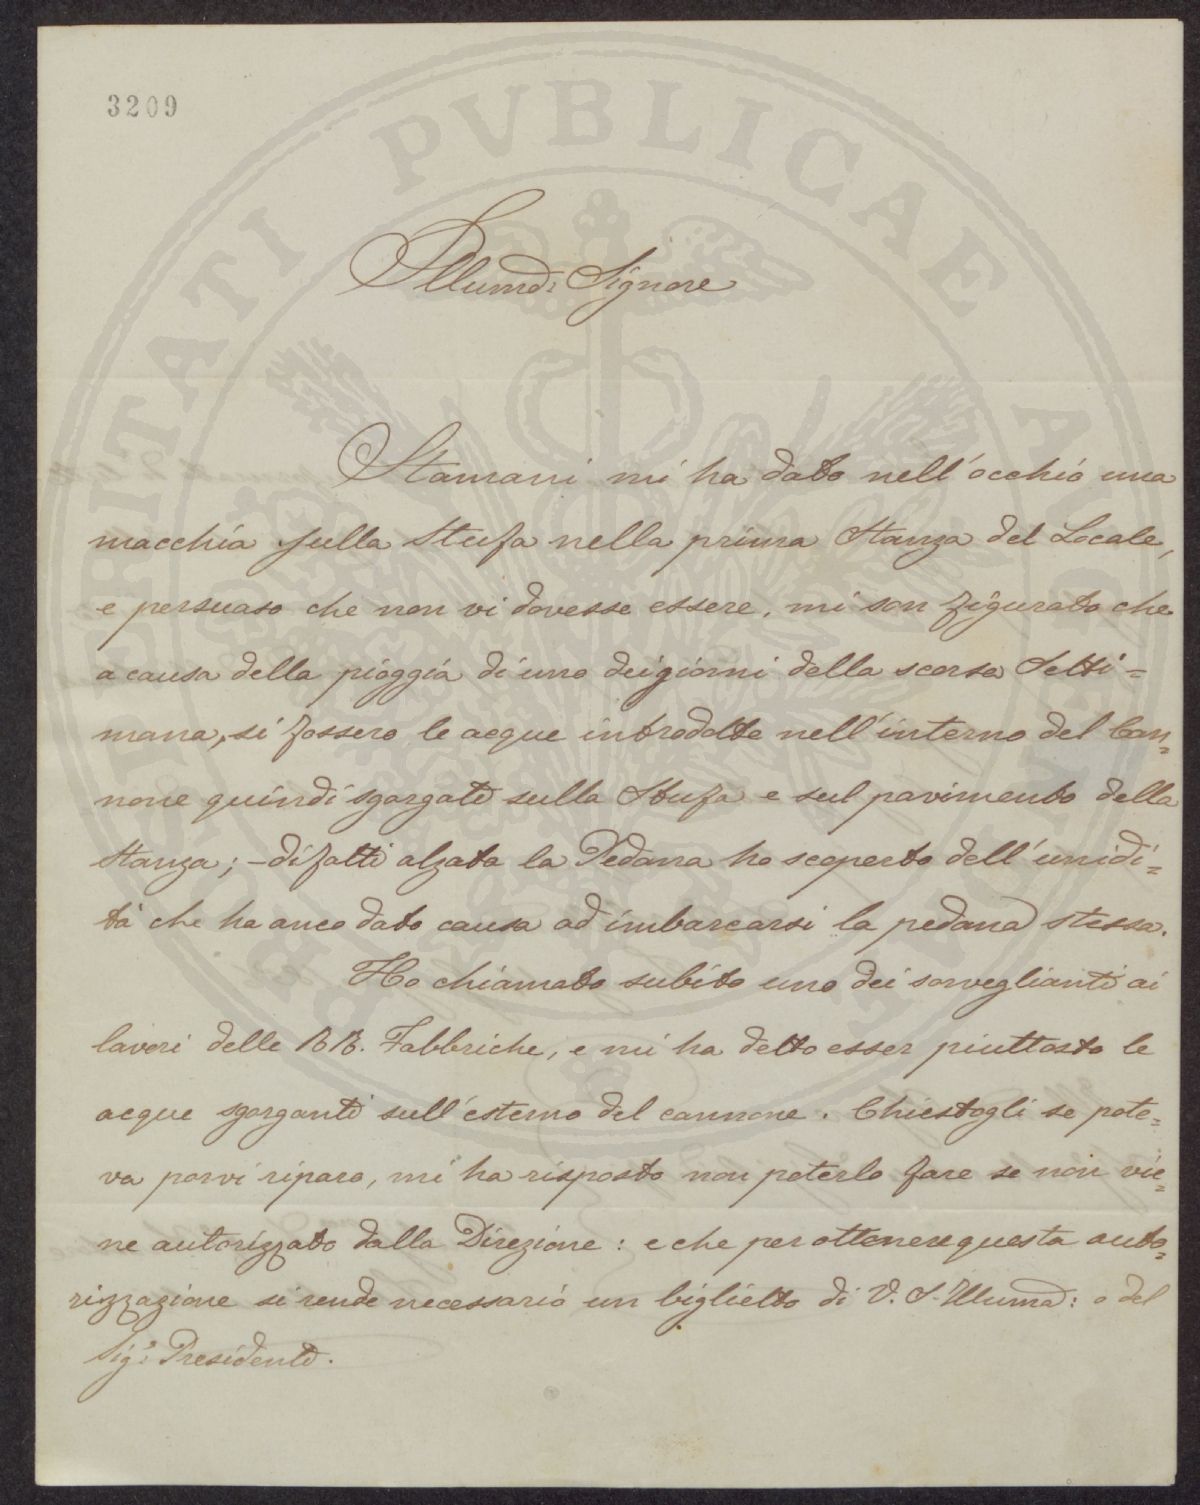 3209
Illumo: Signore
Stamani mi ha dato nell'occhio una
macchia sulla Stufa nella prima Stanza del Locale,
e persuaso che non vi dovesse essere, mi son figurato che
a causa della pioggia di uno dei giorni della scorsa Setti=
mana, si fossero le acque introdotte nell'interno del Can=
none quindi sgorgate sulla Stufa e sul pavimento della
Stanza; - difatti alzata la Pedana ho scoperto dell'umidi=
tà che ha anco dato causa ad imbarcarsi la pedana stessa.
Ho chiamato subito uno dei sorveglianti ai
lavori delle RR. Fabbriche, e mi ha detto esser piuttosto le
acque sgorganti sull'esterno del cannone. Chiestogli se pote=
va porvi riparo, mi ha risposto non poterlo fare se non vie=
ne autorizzato dalla Direzione: e che per ottenere questa auto=
rizzazione si rende necessario un biglietto di V. S. Illuma: o del
Sigr. Presidente.
PVBLICAE